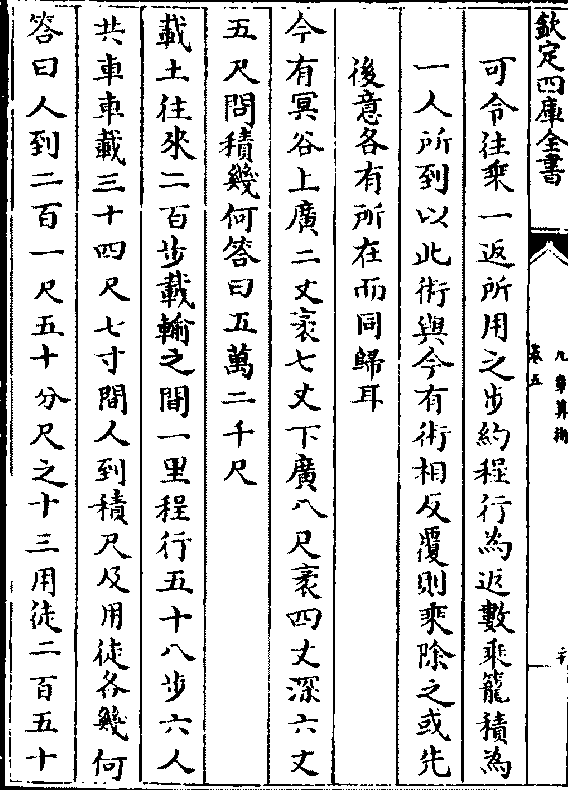 欽定四庫全書
九章算術
卷五
可令往乘一返所用之步約程行為返數乘籠積為
一人所到以此術與今有術相反覆則乘除之或先
後意各有所在而同歸耳
今有冥谷上廣二丈袤七丈下廣八尺袤四丈深六丈
五尺問積幾何答曰五萬二千尺
載土往來二百步載輸之間一里程行五十八步六人
共車車載三十四尺七寸問人到積尺及用徒各幾何
答曰人到二百一尺五十分尺之十三用徒二百五十